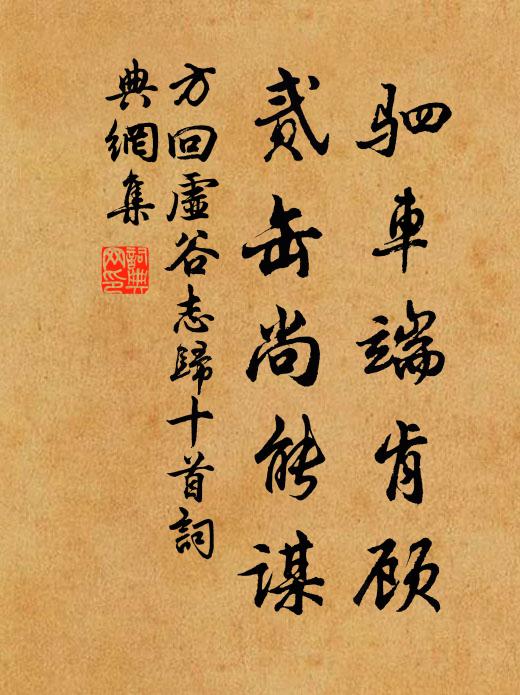 驷車端肯顾
貳缶尚能谋
方回虛谷志歸十首詞
典網集
詞典
网印